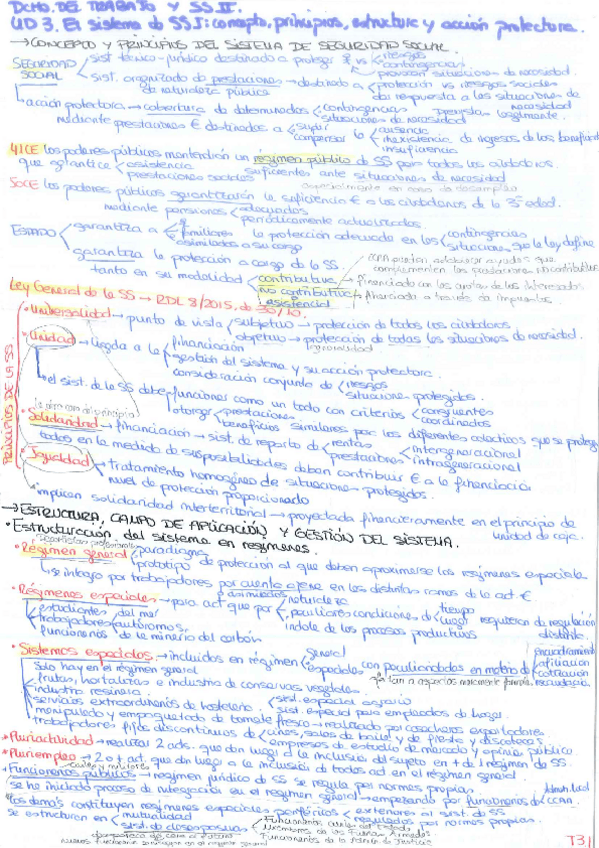 DCHO. DEL TRABAJO Y SS II.
UD 3. El sistema de SS: concepto, principios, estructura y acción protectora.
→ CONCEPTO Y PRINCIPIOS DEL SISTEMA DE SEGURIDAD SOCIAL.
SEGURIDAD SOCIAL sist técnico-jurídico destinado a proteger vs riesgos contingencias
provocan situaciones de necesidad.
sist. organizado de prestaciones → destinado a protección vs riesgos sociales
de naturaleza pública dar respuesta a las situaciones de necesidad
acción protectora → cobertura de determinadas contingencias situaciones de necesidad previstas legalmente.
mediante prestaciones € destinadas a suplir compensar la ausencia inexistencia insuficiencia de ingresos de los
41CE los poderes públicos mantendrán un régimen público de SS para todos los ciudadanos.
que garantice asistencia prestaciones sociales suficientes ante situaciones de necesidad
especialmente en caso de desempleo
50CE los poderes públicos garantizarán la suficiencia € a los ciudadanos de la 3ª edad.
mediante pensiones adecuadas periódicamente actualizadas.
ESTADO garantiza a familiares asimilados a su cargo la protección adecuada en las contingencias situaciones que la ley define
garantiza la protección a cargo de la SS
tanto en su modalidad contributiva
CCAA pueden establecer ayudas que complementen las prestaciones no contributivas
financiada con las cuotas de los interesados
no contributiva asistencial financiada a través de impuestos.
Ley General de la SS → RDL 8/2015, de 30/10.
PRINCIPIOS DE LA SS
• Universalidad → punto de vista subjetivo → protección de todos los ciudadanos
objetivo → protección de todas las situaciones de necesidad.
• Unidad → ligada a la financiación
gestión del sistema y su acción protectora.
consideración conjunta de riesgos situaciones protegidas.
el sist. de la SS debe funciones como un todo con criterios congruentes coordinados
otorgar prestaciones beneficios similares por los diferentes colectivos que se protegen
• Solidaridad → financiación → sist. de reparto de rentas prestaciones intergeneracional intrageneracional
todos en la medida de sus posibilidades deban contribuir € a la financiación
• Igualdad tratamiento homogéneo de situaciones protegidas.
nivel de protección proporcionado
implican solidaridad interterritorial → proyectada financieramente en el principio de unidad de caja.
→ ESTRUCTURA, CAMPO DE APLICACIÓN Y GESTIÓN DEL SISTEMA.
• Estructuración del sistema en regímenes.
• Régimen general paradigma
prototipo de protección al que deben aproximarse los regímenes especiales
se integra por trabajadores por cuenta ajena en las distintas ramas de la act €
o asimilados
• Regímenes especiales → para act que por naturaleza
peculiares condiciones de tiempo lugar requieran de regulación distinta.
índole de los procesos productivos
estudiantes
del mar
trabajadores autónomos,
funcionarios
de la minería del carbón
• Sistemas especiales → incluidos en régimen general especiales con peculiaridades en materia de encuadramiento afiliación cotización recaudación
Solo hay en el régimen general
frutas, hortalizas e industria de conservas vegetales.
industria resinera.
servicios extraordinarios de hostelería.
sist. especial agrario
sist. especial para empleados de hogar
manipulado y empaquetado de tomate fresco → realizado por cosecheros exportadores.
trabajadores fijos discontinuos de cines, salas de baile y de fiesta y discotecas
empresas de estudio de mercado y opinión pública
• Pluriactividad → realizar 2 acts. que dan lugar a la inclusión del sujeto en + de 1 régimen de SS.
• Pluriempleo → 2 o + act. que dan lugar a la inclusión de todas act en el régimen general
• Funcionarios públicos → régimen jurídico de SS se regula por normas propias.
se ha iniciado proceso de integración en el régimen general → empezando por funcionarios de Admón. local CCAA.
los demás constituyen regímenes especiales periféricos exteriores al sist. de SS
regulados por normas propias.
se estructuran en mutualidad
Funcionarios civiles del Estado
Miembros de las Fuerzas Armadas
Funcionarios de la Admón de Justicia
sist. de clases pasivas
T31